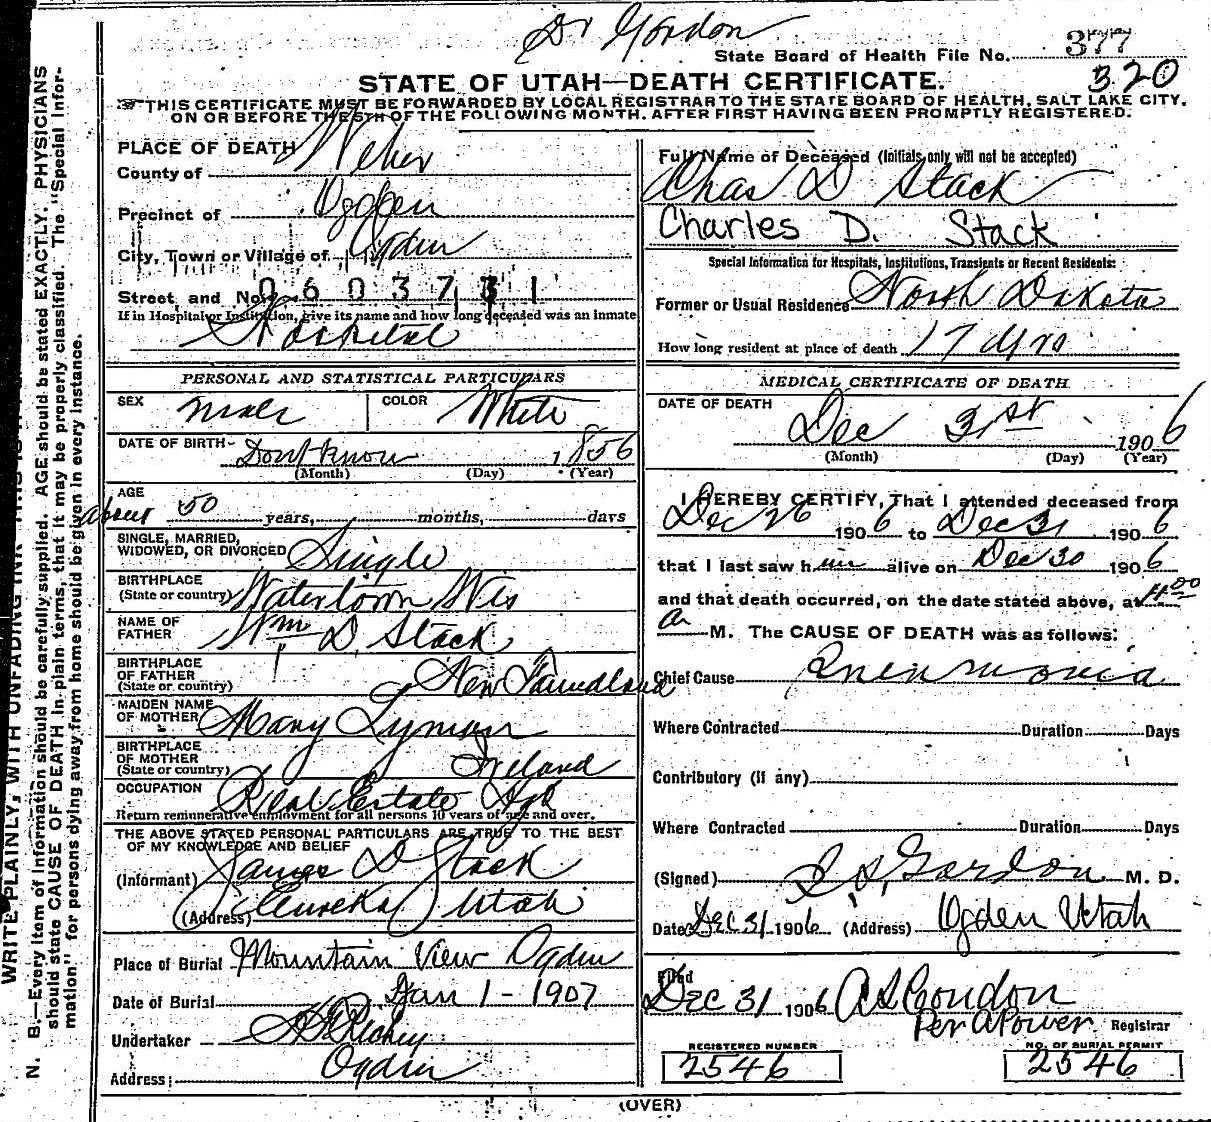 Dr Gordon
State Board of Health File No. 377
320
STATE OF UTAH—DEATH CERTIFICATE.
THIS CERTIFICATE MUST BE FORWARDED BY LOCAL REGISTRAR TO THE STATE BOARD OF HEALTH, SALT LAKE CITY,
ON OR BEFORE THE 5TH OF THE FOLLOWING MONTH, AFTER FIRST HAVING BEEN PROMPTLY REGISTERED.
PLACE OF DEATH
County of Weber
Precinct of Ogden
City, Town or Village of Ogden
Street and No. 0603731
If in Hospital or Institution, give its name and how long deceased was an inmate
Hospital
Full Name of Deceased (Initials only will not be accepted)
Chas D Stack
Charles D. Stack
Special Information for Hospitals, Institutions, Transients or Recent Residents:
Former or Usual Residence North Dakota
How long resident at place of death 17 Yrs
PERSONAL AND STATISTICAL PARTICULARS
SEX Male COLOR White
DATE OF BIRTH- Dont know 1856
(Month) (Day) (Year)
AGE
about 50 years, months, days
SINGLE, MARRIED,
WIDOWED, OR DIVORCED Single
BIRTHPLACE
(State or country) Watertown Wis
NAME OF
FATHER Wm D. Stack
BIRTHPLACE
OF FATHER
(State or country) New Foundland
MAIDEN NAME
OF MOTHER Mary
BIRTHPLACE
OF MOTHER
(State or country) Ireland
OCCUPATION Real Estate Agt
Return remunerative employment for all persons 10 years of age and over.
THE ABOVE STATED PERSONAL PARTICULARS ARE TRUE TO THE BEST
OF MY KNOWLEDGE AND BELIEF
(Informant) James D Stack
(Address) Eureka Utah
Place of Burial Mountain View Ogden
Date of Burial Jan 1 - 1907
Undertaker Richey
Address: Ogden
MEDICAL CERTIFICATE OF DEATH
DATE OF DEATH
Dec 31st 1906
(Month) (Day) (Year)
I HEREBY CERTIFY, That I attended deceased from
Dec 26 1906 to Dec 31 1906
that I last saw him alive on Dec 30 1906
and that death occurred, on the date stated above, at 4:00
a M. The CAUSE OF DEATH was as follows:
Chief Cause Pneumonia
Where Contracted Duration Days
Contributory (if any)
Where Contracted Duration Days
(Signed) Gordon M. D.
Date Dec 31 1906 (Address) Ogden Utah
Filed
Dec 31 1906 A S Condon
Per A Power Registrar
REGISTERED NUMBER
2546
NO. OF BURIAL PERMIT
2546
(OVER)
N. B.—Every item of information should be carefully supplied. AGE should be stated EXACTLY. PHYSICIANS
should state CAUSE OF DEATH in plain terms, that it may be properly classified. The "Special Infor-
mation" for persons dying away from home should be given in every instance.
WRITE PLAINLY, WITH UNFADING INK